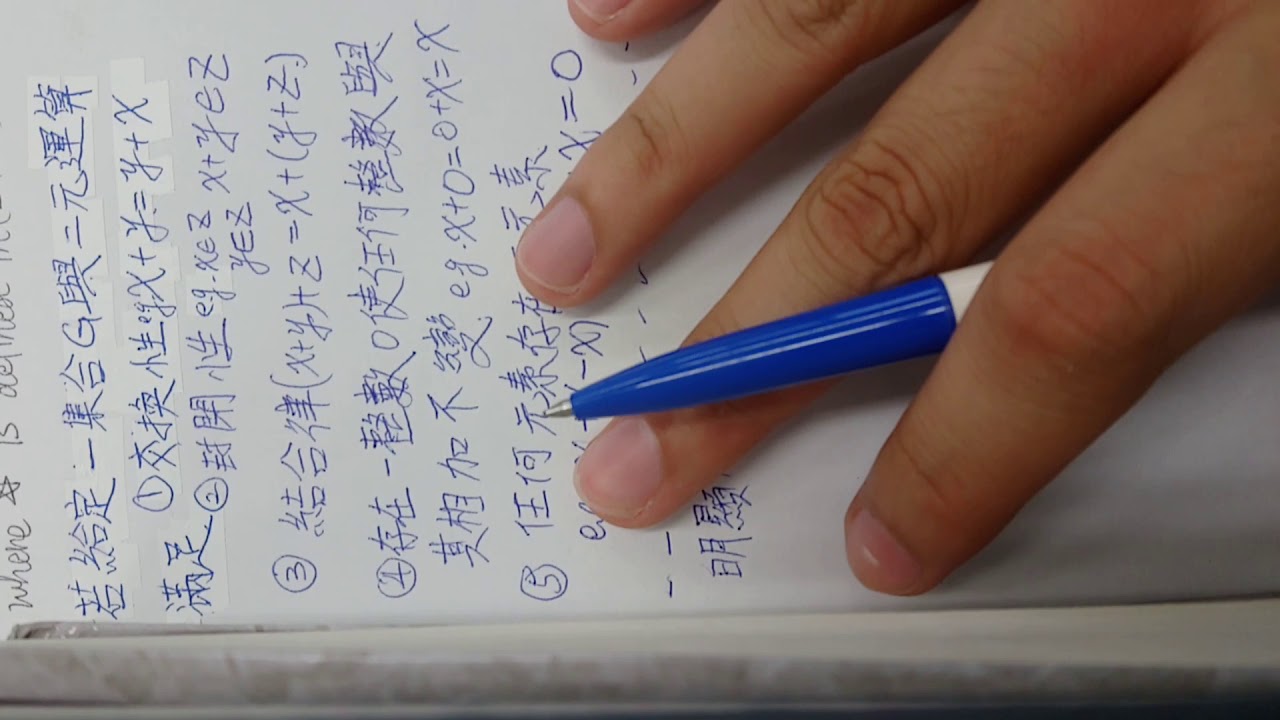 where * is defined in
若給定一集合G與二元運算
滿足 ①交換性eg x+y=y+x
②封閉性eg.x∈Z y∈Z x+y∈Z
③ 結合律(x+y)+z=x+(y+z)
④存在一整數0使任何整數與
其相加不變 eg.x+0=0+x=x
⑤ 任何元素存在 元素
-x) x=0
明顯